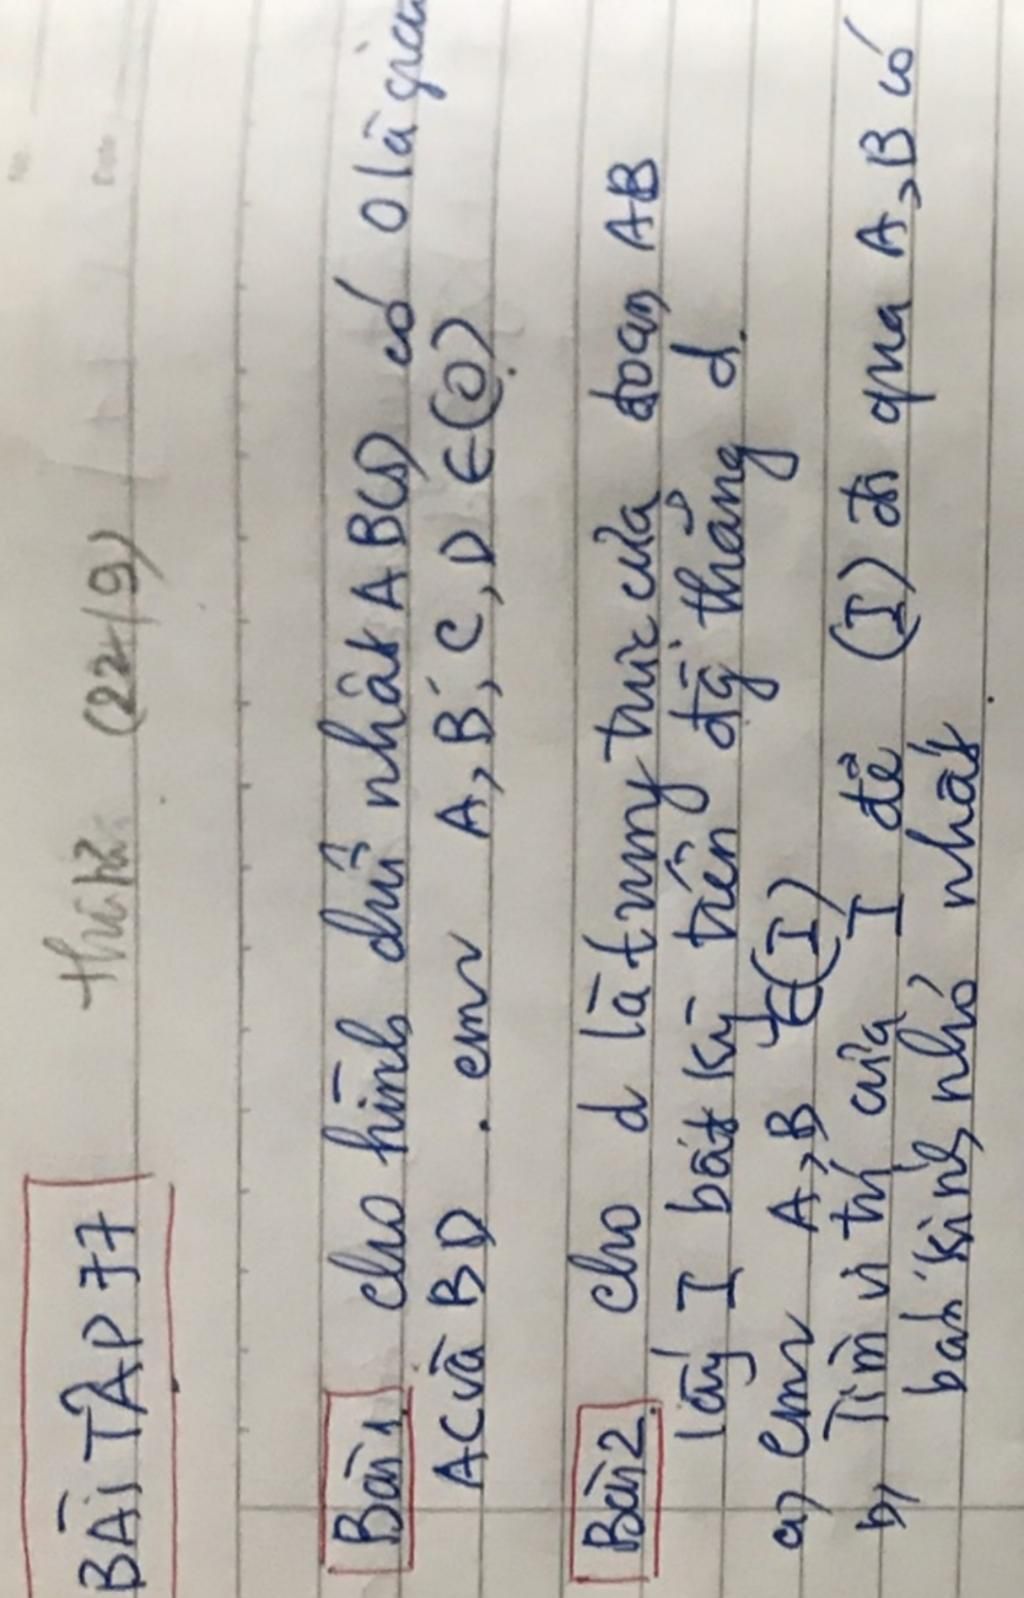 BÀI TẬP 77 thứ hai (22/9)
Bài 1. cho hình chữ nhật ABCD có O là giao
AC và BD. cmr A, B, C, D ∈ (O).
Bài 2. cho d là trung trực của đoạn AB
lấy I bất kỳ trên đg thẳng d.
a) cmr A, B ∈ (I)
b) Tìm vị trí của I để (I) đi qua A, B có
bán kính nhỏ nhất.